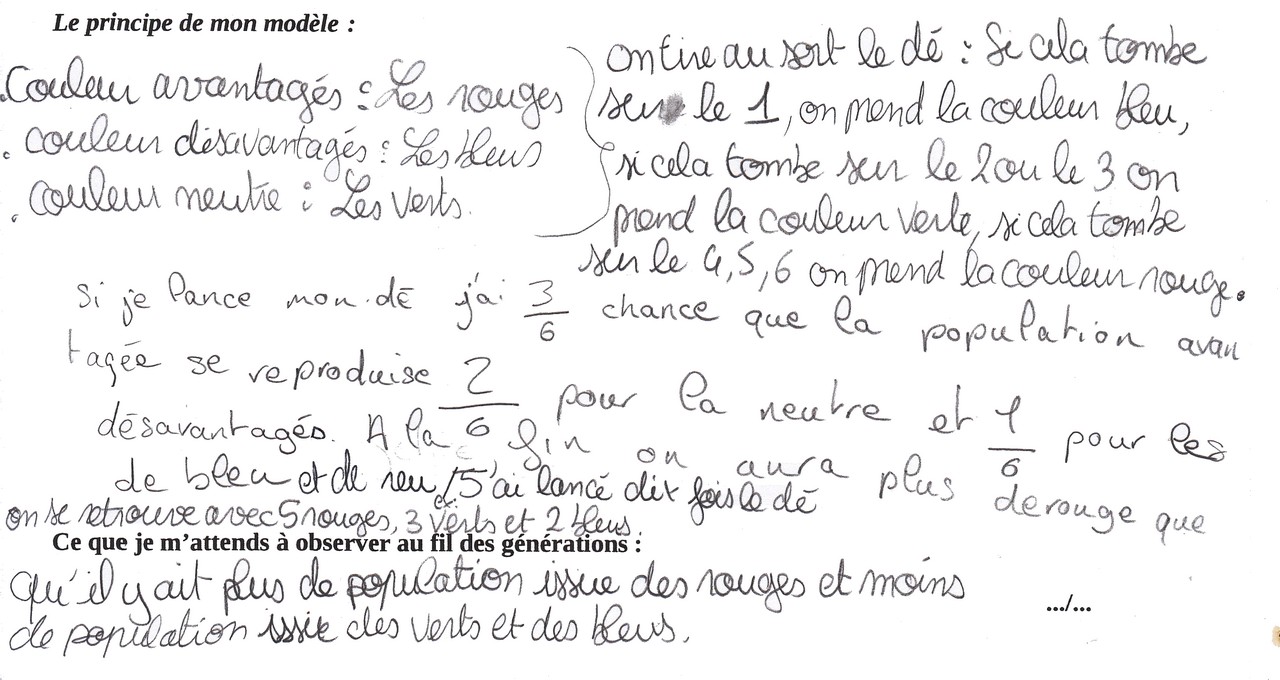 Le principe de mon modèle :
. Couleur avantagés : Les rouges
. couleur désavantagés : Les bleus
. couleur neutre : Les verts.
on tire au sort le dé : Si cela tombe
sur le 1, on prend la couleur bleu,
si cela tombe sur le 2 ou le 3 on
prend la couleur verte, si cela tombe
sur le 4, 5, 6 on prend la couleur rouge.
Si je lance mon dé j'ai 3/6 chance que la population avan
tagée se reproduise 2/6 pour la neutre et 1/6 pour les
désavantagés. A la fin on aura plus de rouge que
de bleu et de J'ai lancé dix fois le dé
on se retrouve avec 5 rouges, 3 verts et 2 bleus.
Ce que je m'attends à observer au fil des générations :
Qu'il y ait plus de population issue des rouges et moins
de population issue des verts et des bleus.
.../...